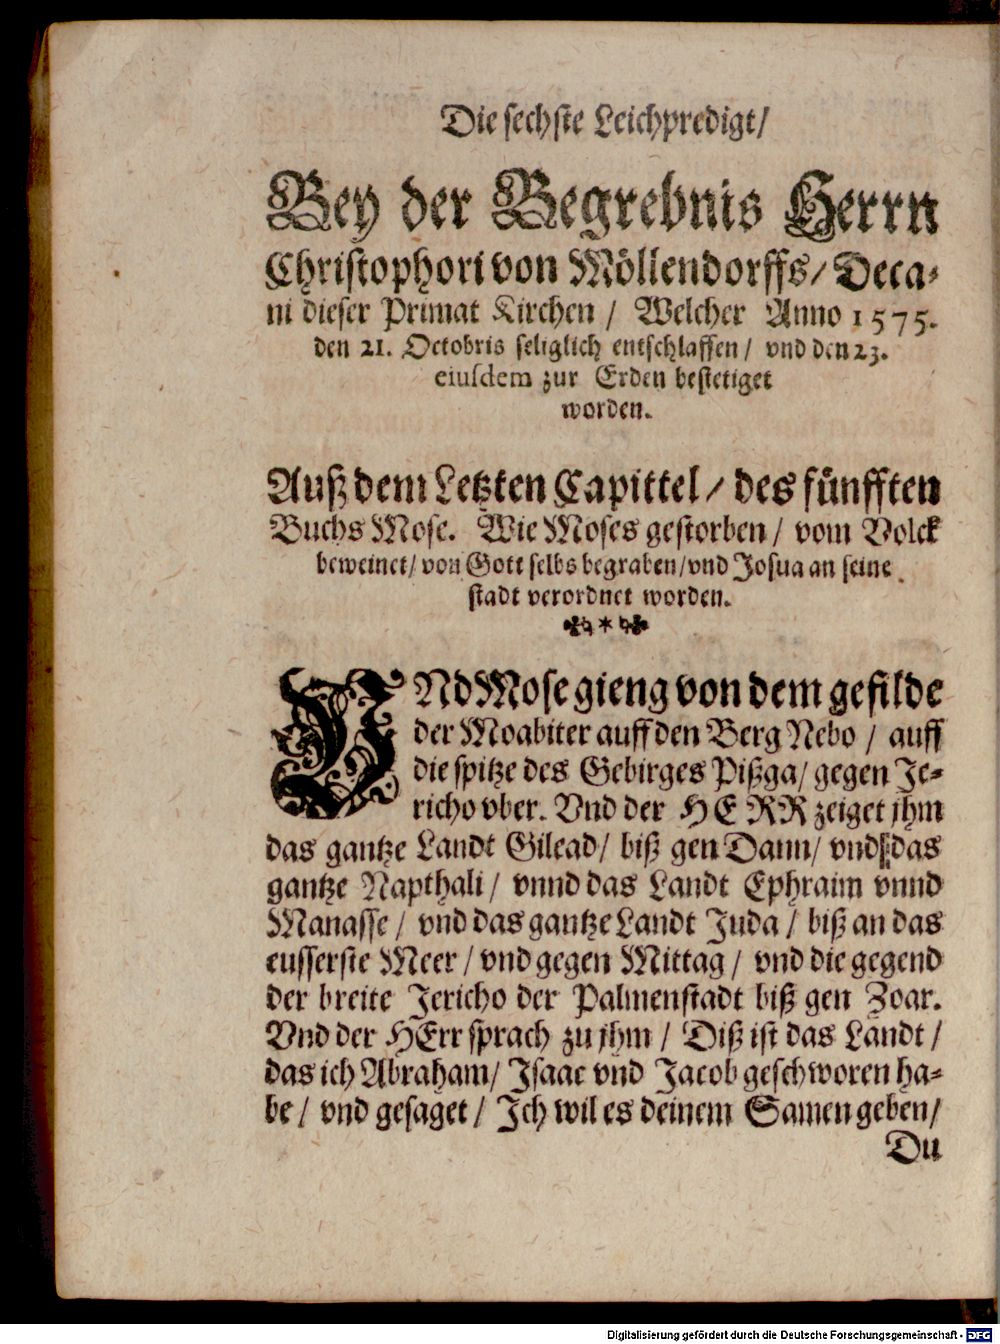 Die sechste Leichpredigt/
Bey der Begrebnis Herrn
Christophori von Möllendorffs/ Deca-
ni dieser Primat Kirchen / Welcher Anno 1575.
den 21. Octobris seliglich entschlaffen/ vnd den 23.
eiusdem zur Erden bestetiget
worden.
Auß dem Letzten Capittel / des fünfften
Buchs Mose. Wie Moses gestorben / vom Volck
beweinet/ von Gott selbs begraben/vnd Josua an seine
stadt verordnet worden.
VNd Mose gieng von dem gefilde
der Moabiter auff den Berg Nebo / auff
die spitze des Gebirges Pißga/ gegen Je-
richo vber. Vnd der HERR zeiget jhm
das gantze Landt Gilead/ biß gen Dann/ vnd das
gantze Napthali / vnnd das Landt Ephraim vnnd
Manasse / vnd das gantze Landt Juda / biß an das
eusserste Meer / vnd gegen Mittag / vnd die gegend
der breite Jericho der Palmenstadt biß gen Zoar.
Vnd der HErr sprach zu jhm / Diß ist das Landt /
das ich Abraham/ Isaac vnd Jacob geschworen ha-
be / vnd gesaget / Ich wil es deinem Samen geben/
Du
Digitalisierung gefördert durch die Deutsche Forschungsgemeinschaft - DFG